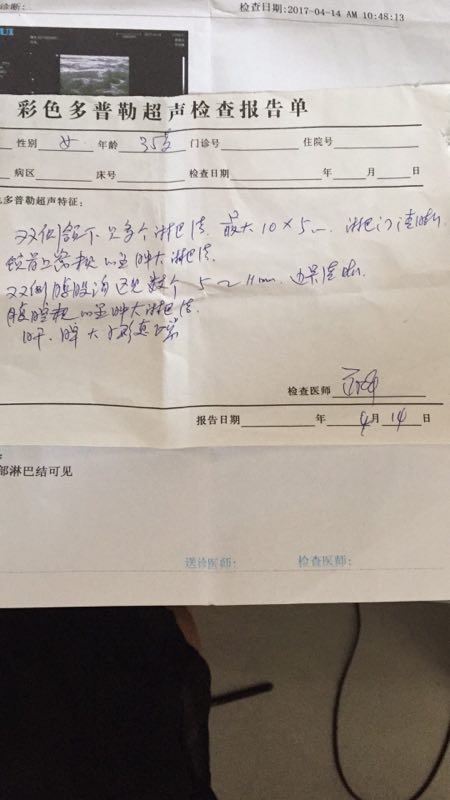 诊断:
检查日期:2017-04-14 AM 10:48:13
彩色多普勒超声检查报告单
性别 女 年龄 35岁 门诊号 住院号
病区 床号 检查日期 年 月 日
多普勒超声特征:
双侧颌下见多个淋巴结 最大10×5mm 淋巴门清晰
锁骨上窝未见肿大淋巴结
双侧腹股沟区见数个 5~11mm 边界清晰
腹腔 肿大淋巴结
肝、脾大小形态正常
检查医师
报告日期 年 4 月 14 日
部淋巴结可见
送诊医师: 检查医师: